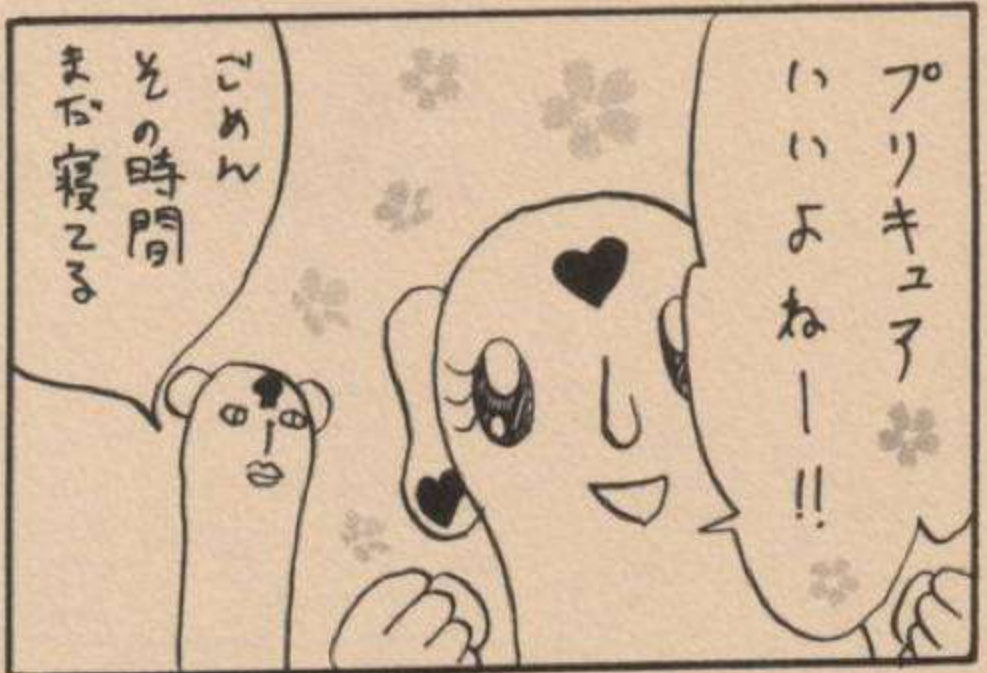 プリキュア
いいよねー!!
ごめん
その時間
まだ寝てる